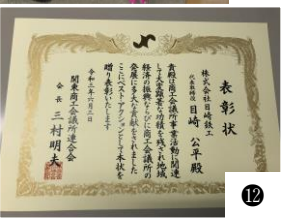 表彰状
株式会社目崎鉄工
代表取締役 目崎 公平殿
貴殿は商工会議所事業活動に関連
して大変顕著な功績を残され地域
経済の振興ならびに商工会議所の
発展に多大な貢献をされました
ここにベスト・アクションとして本状を
贈り表彰いたします
令和三年六月三日
関東商工会議所連合会
会長 三村明夫
⑫